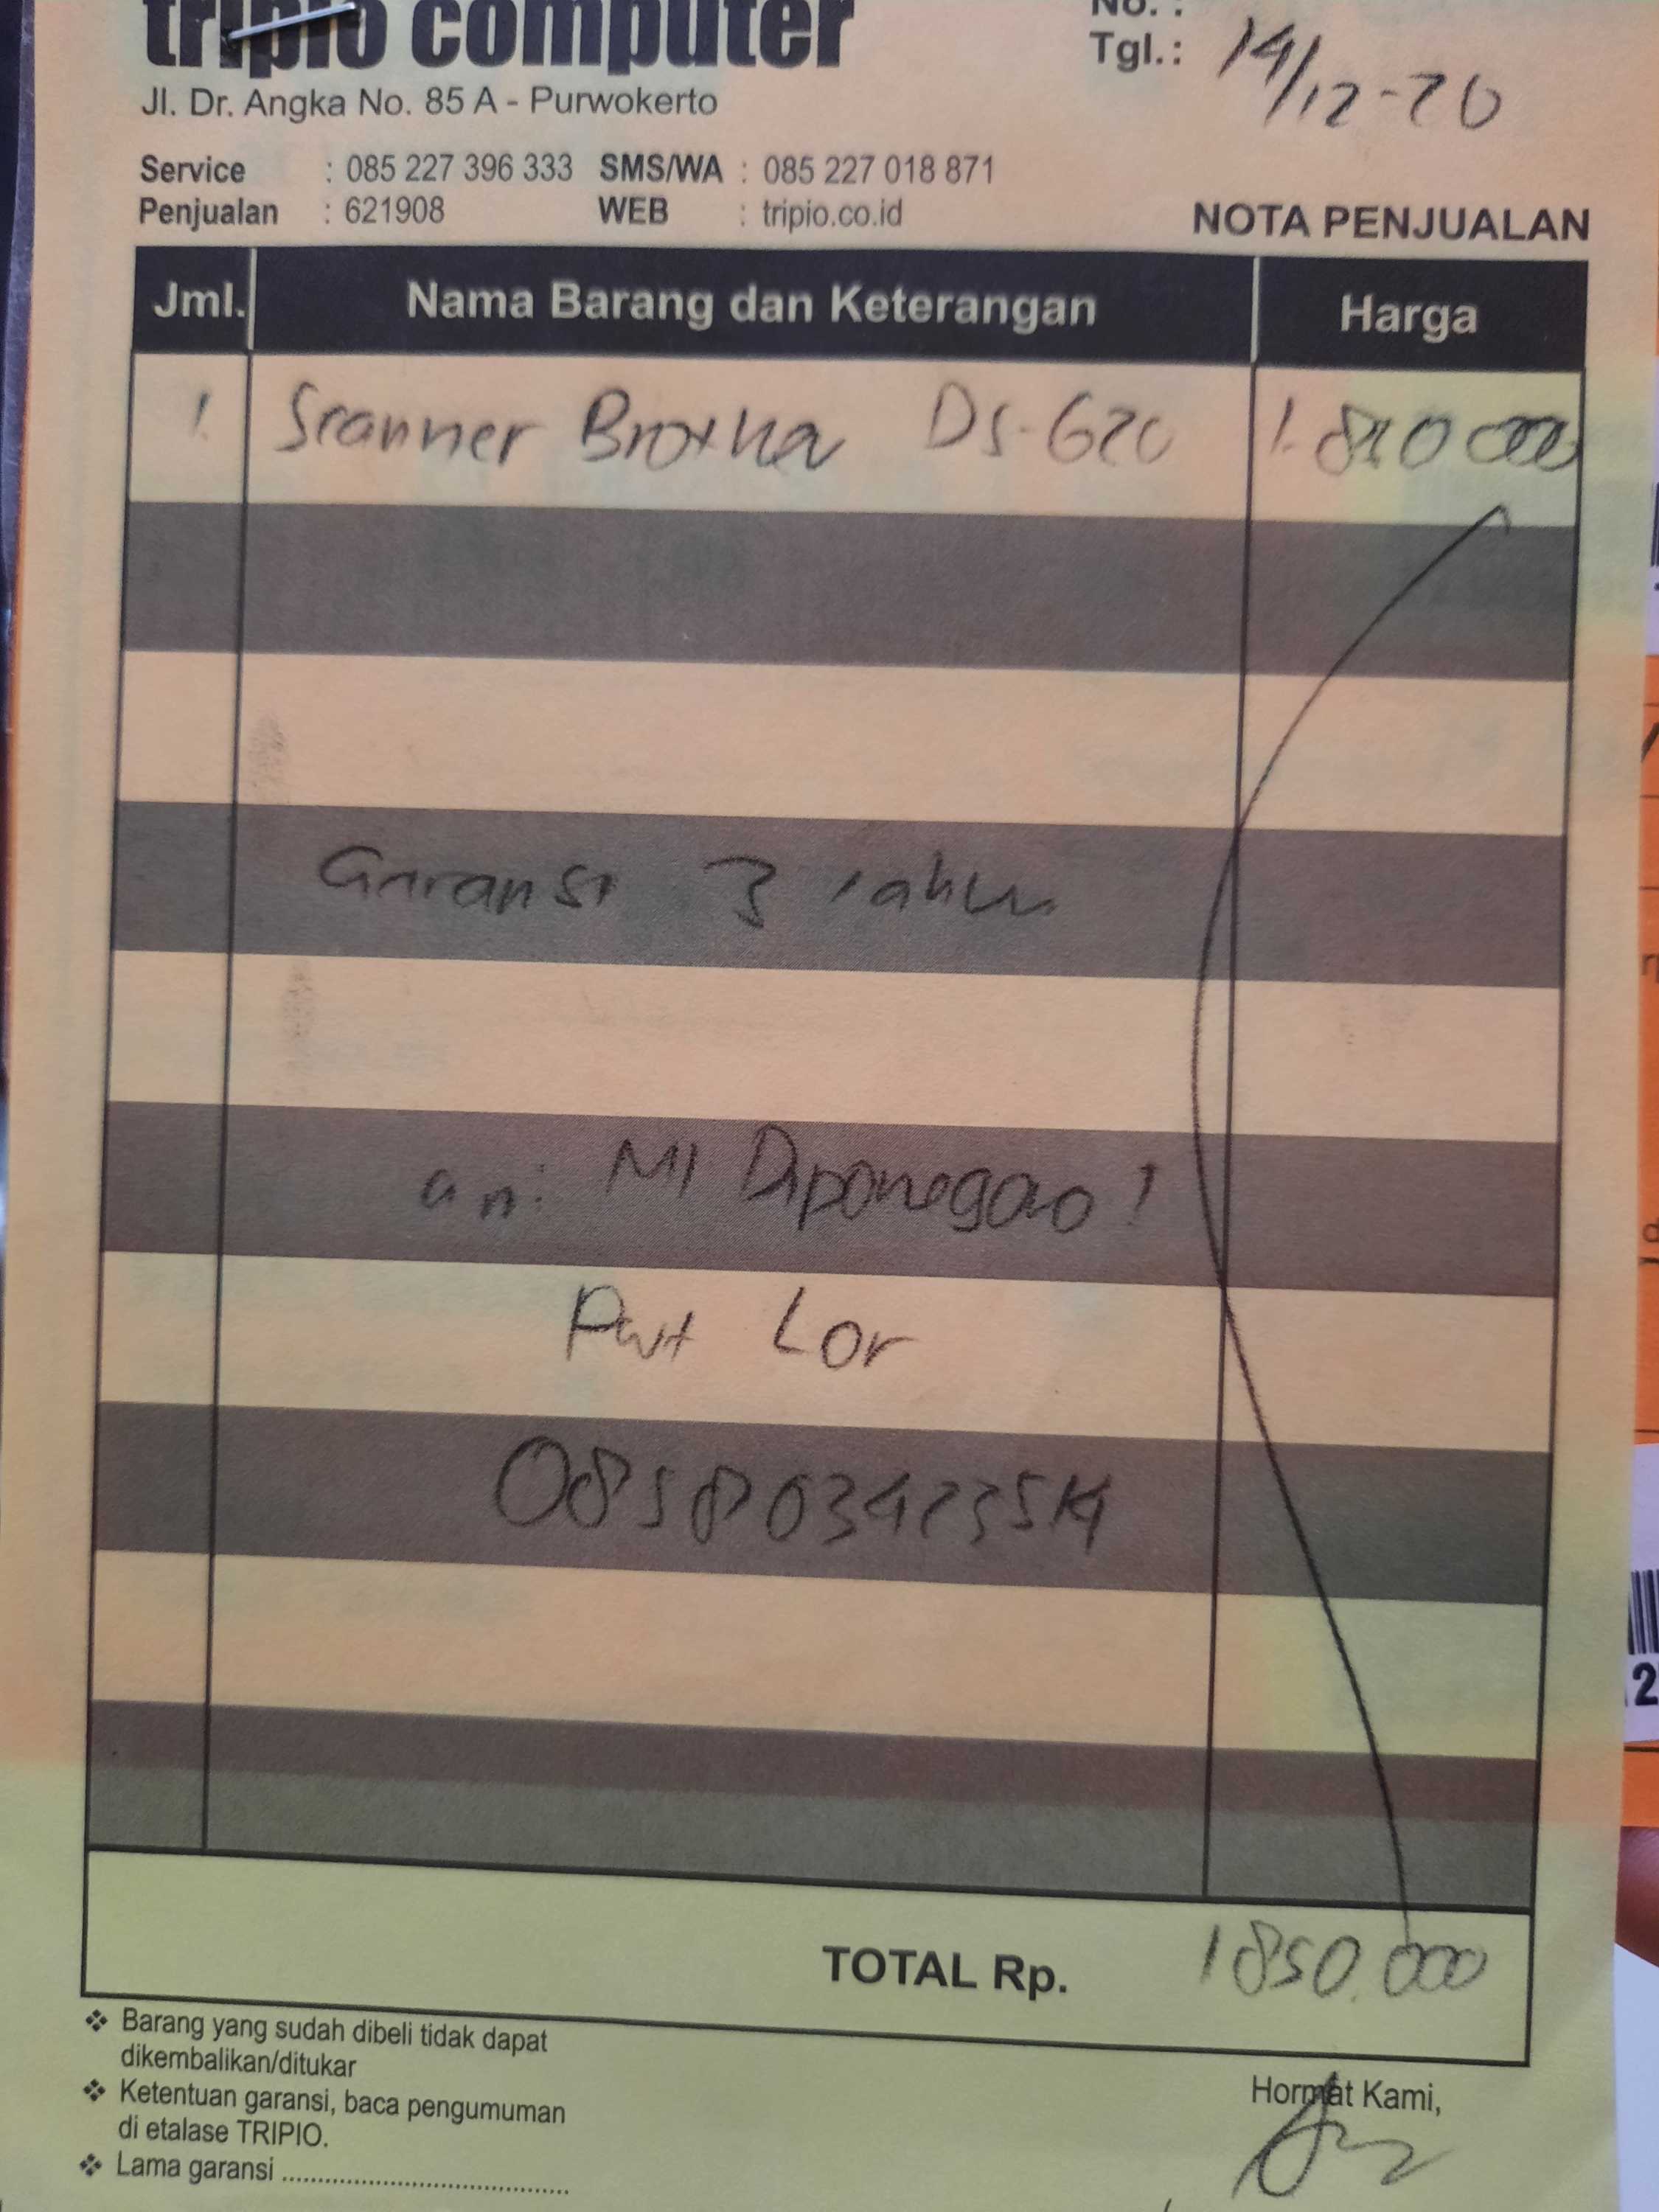 tripio computer
No. :
Tgl. : 14/12-20
Jl. Dr. Angka No. 85 A - Purwokerto
Service : 085 227 396 333 SMS/WA : 085 227 018 871
Penjualan : 621908 WEB : tripio.co.id
NOTA PENJUALAN
Jml. Nama Barang dan Keterangan Harga
1. Scanner Brother DS-620 1.850 000
Garansi 3 tahun
an: MI Diponegoro 1
Pwt Lor
TOTAL Rp. 1850.000
Barang yang sudah dibeli tidak dapat
dikembalikan/ditukar
Ketentuan garansi, baca pengumuman
di etalase TRIPIO.
Lama garansi ........................................
Hormat Kami,